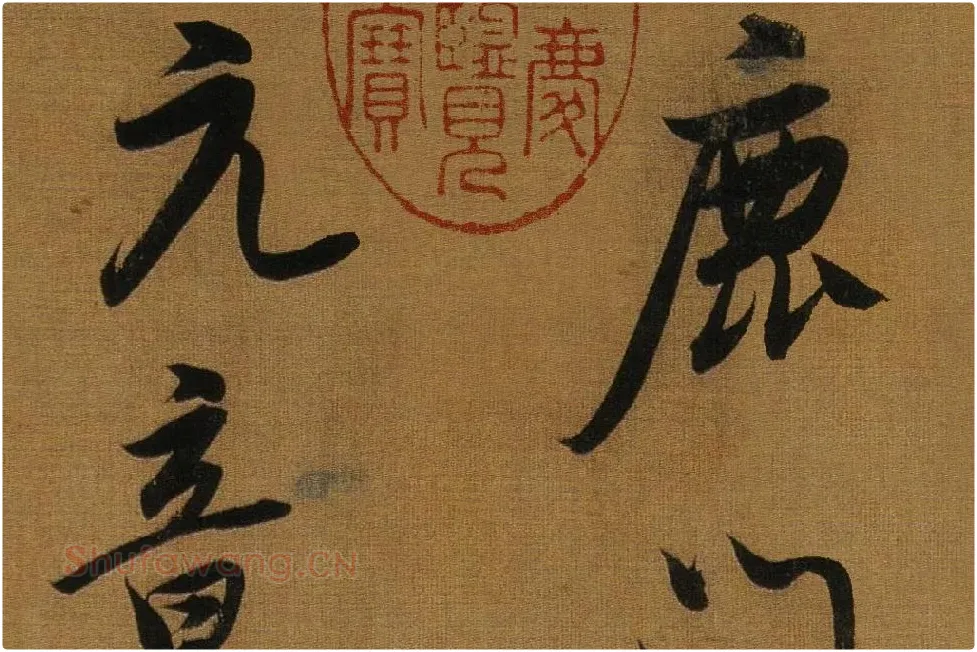 鹿門
慶
覽
寶
元章
Shufawang.CN